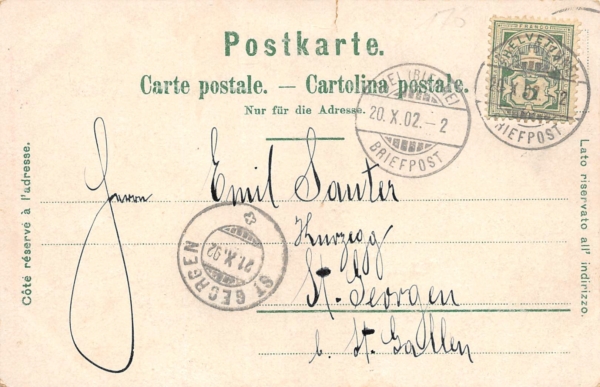 Postkarte.
Carte postale. — Cartolina postale.
Nur für die Adresse.
Côté réservé à l'adresse.
Lato riservato all' indirizzo.
FRANCO
HELVETIA
5
BIEL (BIENNE)
20.X.02.-2
BRIEFPOST
20.X.02.-2
BRIEFPOST
Herrn Emil Sauter
Kurzegg
St. Georgen
b. St. Gallen
ST GEORGEN
21.X.02